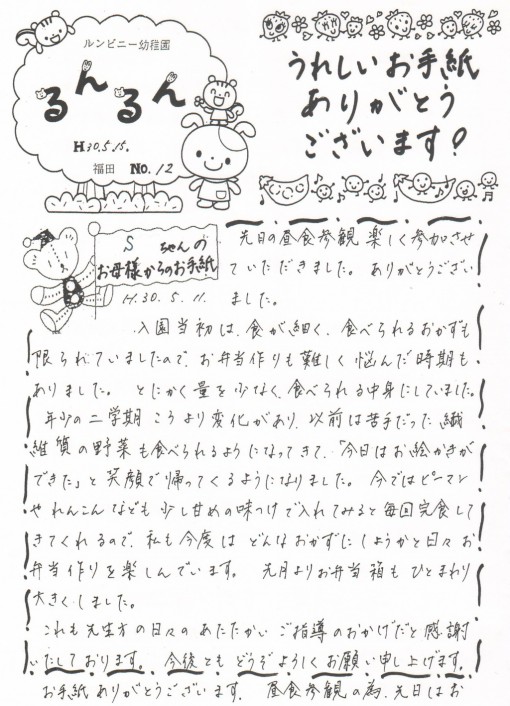 ルンビニー幼稚園
るんるん
H30.5.15.
福田 No.12
うれしいお手紙
ありがとう
ございます!
S ちゃんの
お母様からのお手紙
H.30.5.11.
先日の昼食参観 楽しく参加させ
ていただきました。ありがとうござい
ました。
入園当初は、食が細く、食べられるおかずも
限られていましたので、お弁当作りも難しく悩んだ時期も
ありました。 とにかく量を少なく、食べられる中身にしていました。
年少の二学期ころより変化があり、以前は苦手だった繊
維質の野菜も食べられるようになってきて、「今日はお絵かきが
できた」と笑顔で帰ってくるようになりました。 今ではピーマン
やれんこんなども少し甘めの味つけで入れてみると毎回完食して
きてくれるので、私も今度はどんなおかずにしようかと日々お
弁当作りを楽しんでいます。 先月よりお弁当箱もひとまわり
大きくしました。
これも先生方の日々のあたたかいご指導のおかげだと感謝
いたしております。 今後ともどうぞよろしくお願い申し上げます。
お手紙ありがとうございます。 昼食参観の為、先日はお